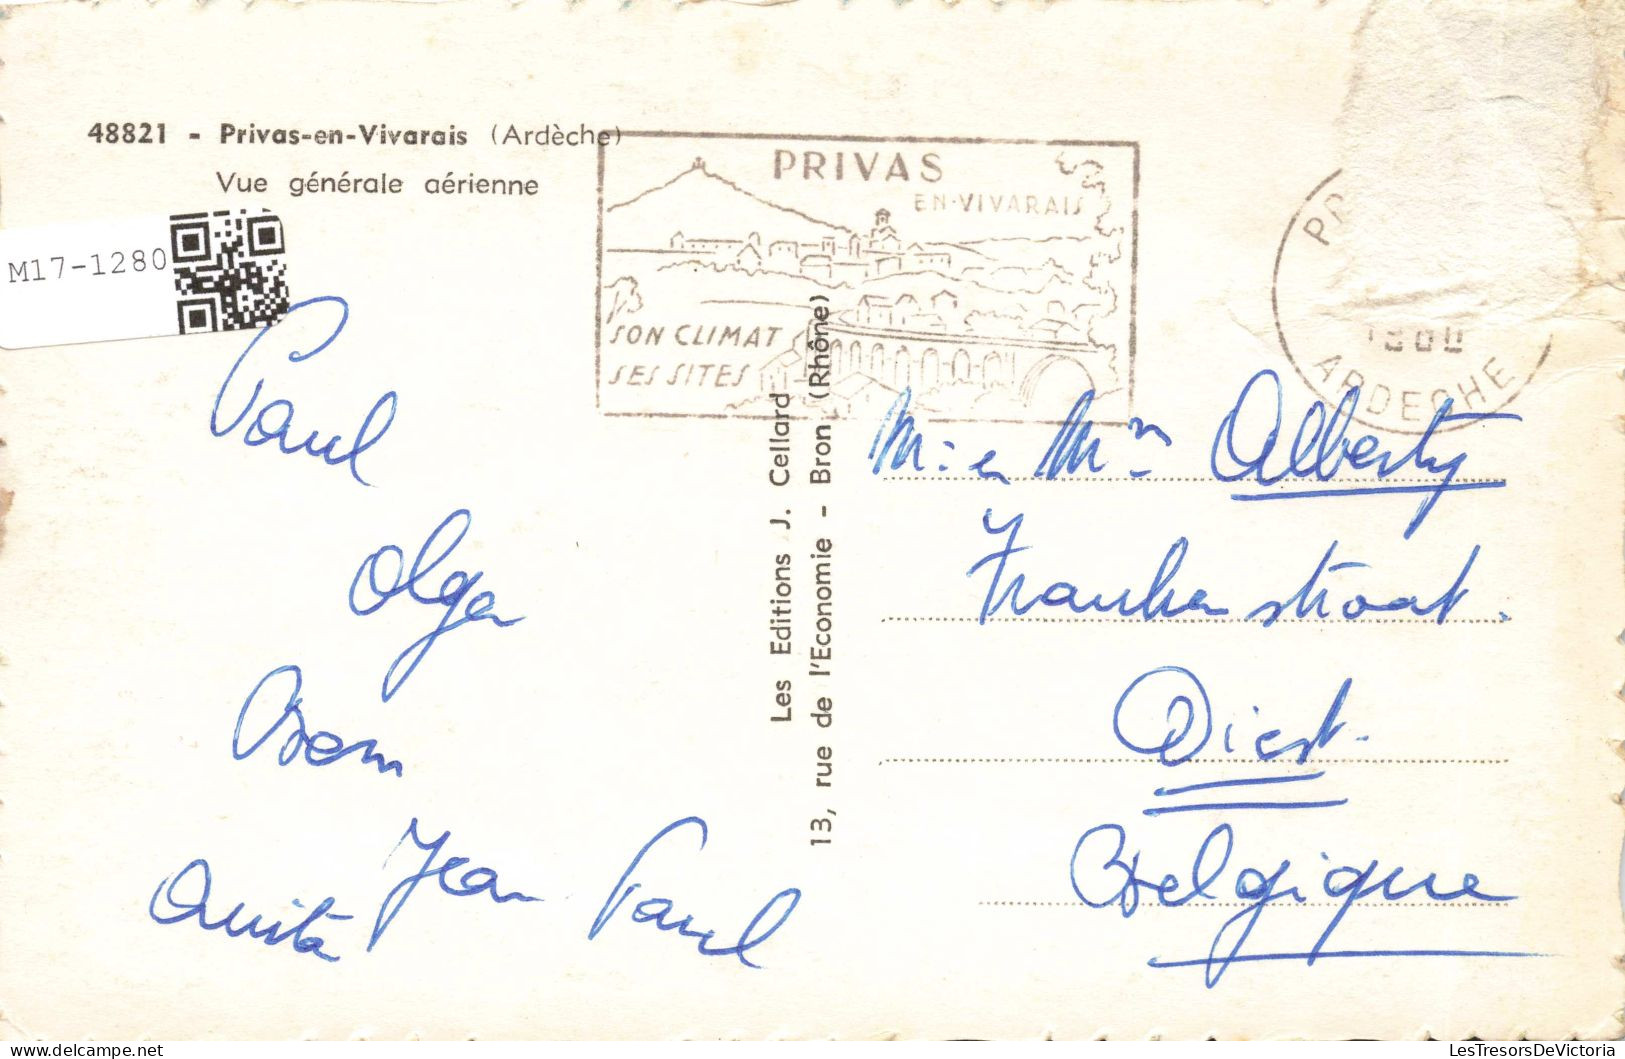 48821 - Privas-en-Vivarais (Ardèche)
Vue générale aérienne
M17-1280
PRIVAS
EN-VIVARAIS
SON CLIMAT
SES SITES
ARDECHE
Les Editions J. Cellard
13, rue de l'Economie - Bron (Rhône)
Paul
Olga
Jean Paul
Anita
M. en Mm Alberty
straat.
Diest.
Belgique
LesTresorsDeVictoria